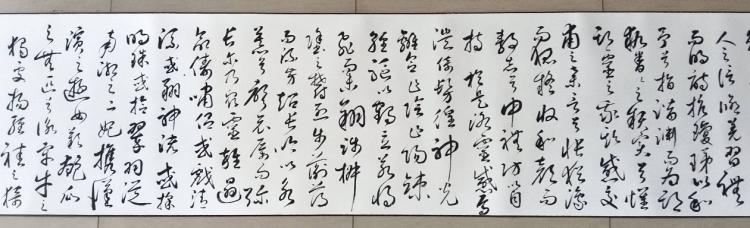 人之信修羌習禮
而明詩抗瓊珶以和
予兮指潛淵而為期
執眷眷之款實兮懼
斯靈之我欺感交
甫之棄言兮悵猶豫
而狐疑收和顏而
靜志兮申禮防以自
持於是洛靈感焉
徙倚彷徨神光
離合乍陰乍陽竦
輕軀以鶴立若將
飛而未翔踐椒
塗之郁烈步蘅薄
而流芳超長吟以永
慕兮聲哀厲而彌
長爾乃衆靈雜遝
命儔嘯侶或戲清
流或翔神渚或採
明珠或拾翠羽從
南湘之二妃攜漢
濱之遊女歎匏瓜
之無匹兮詠牽牛之
獨處揚輕袿之猗